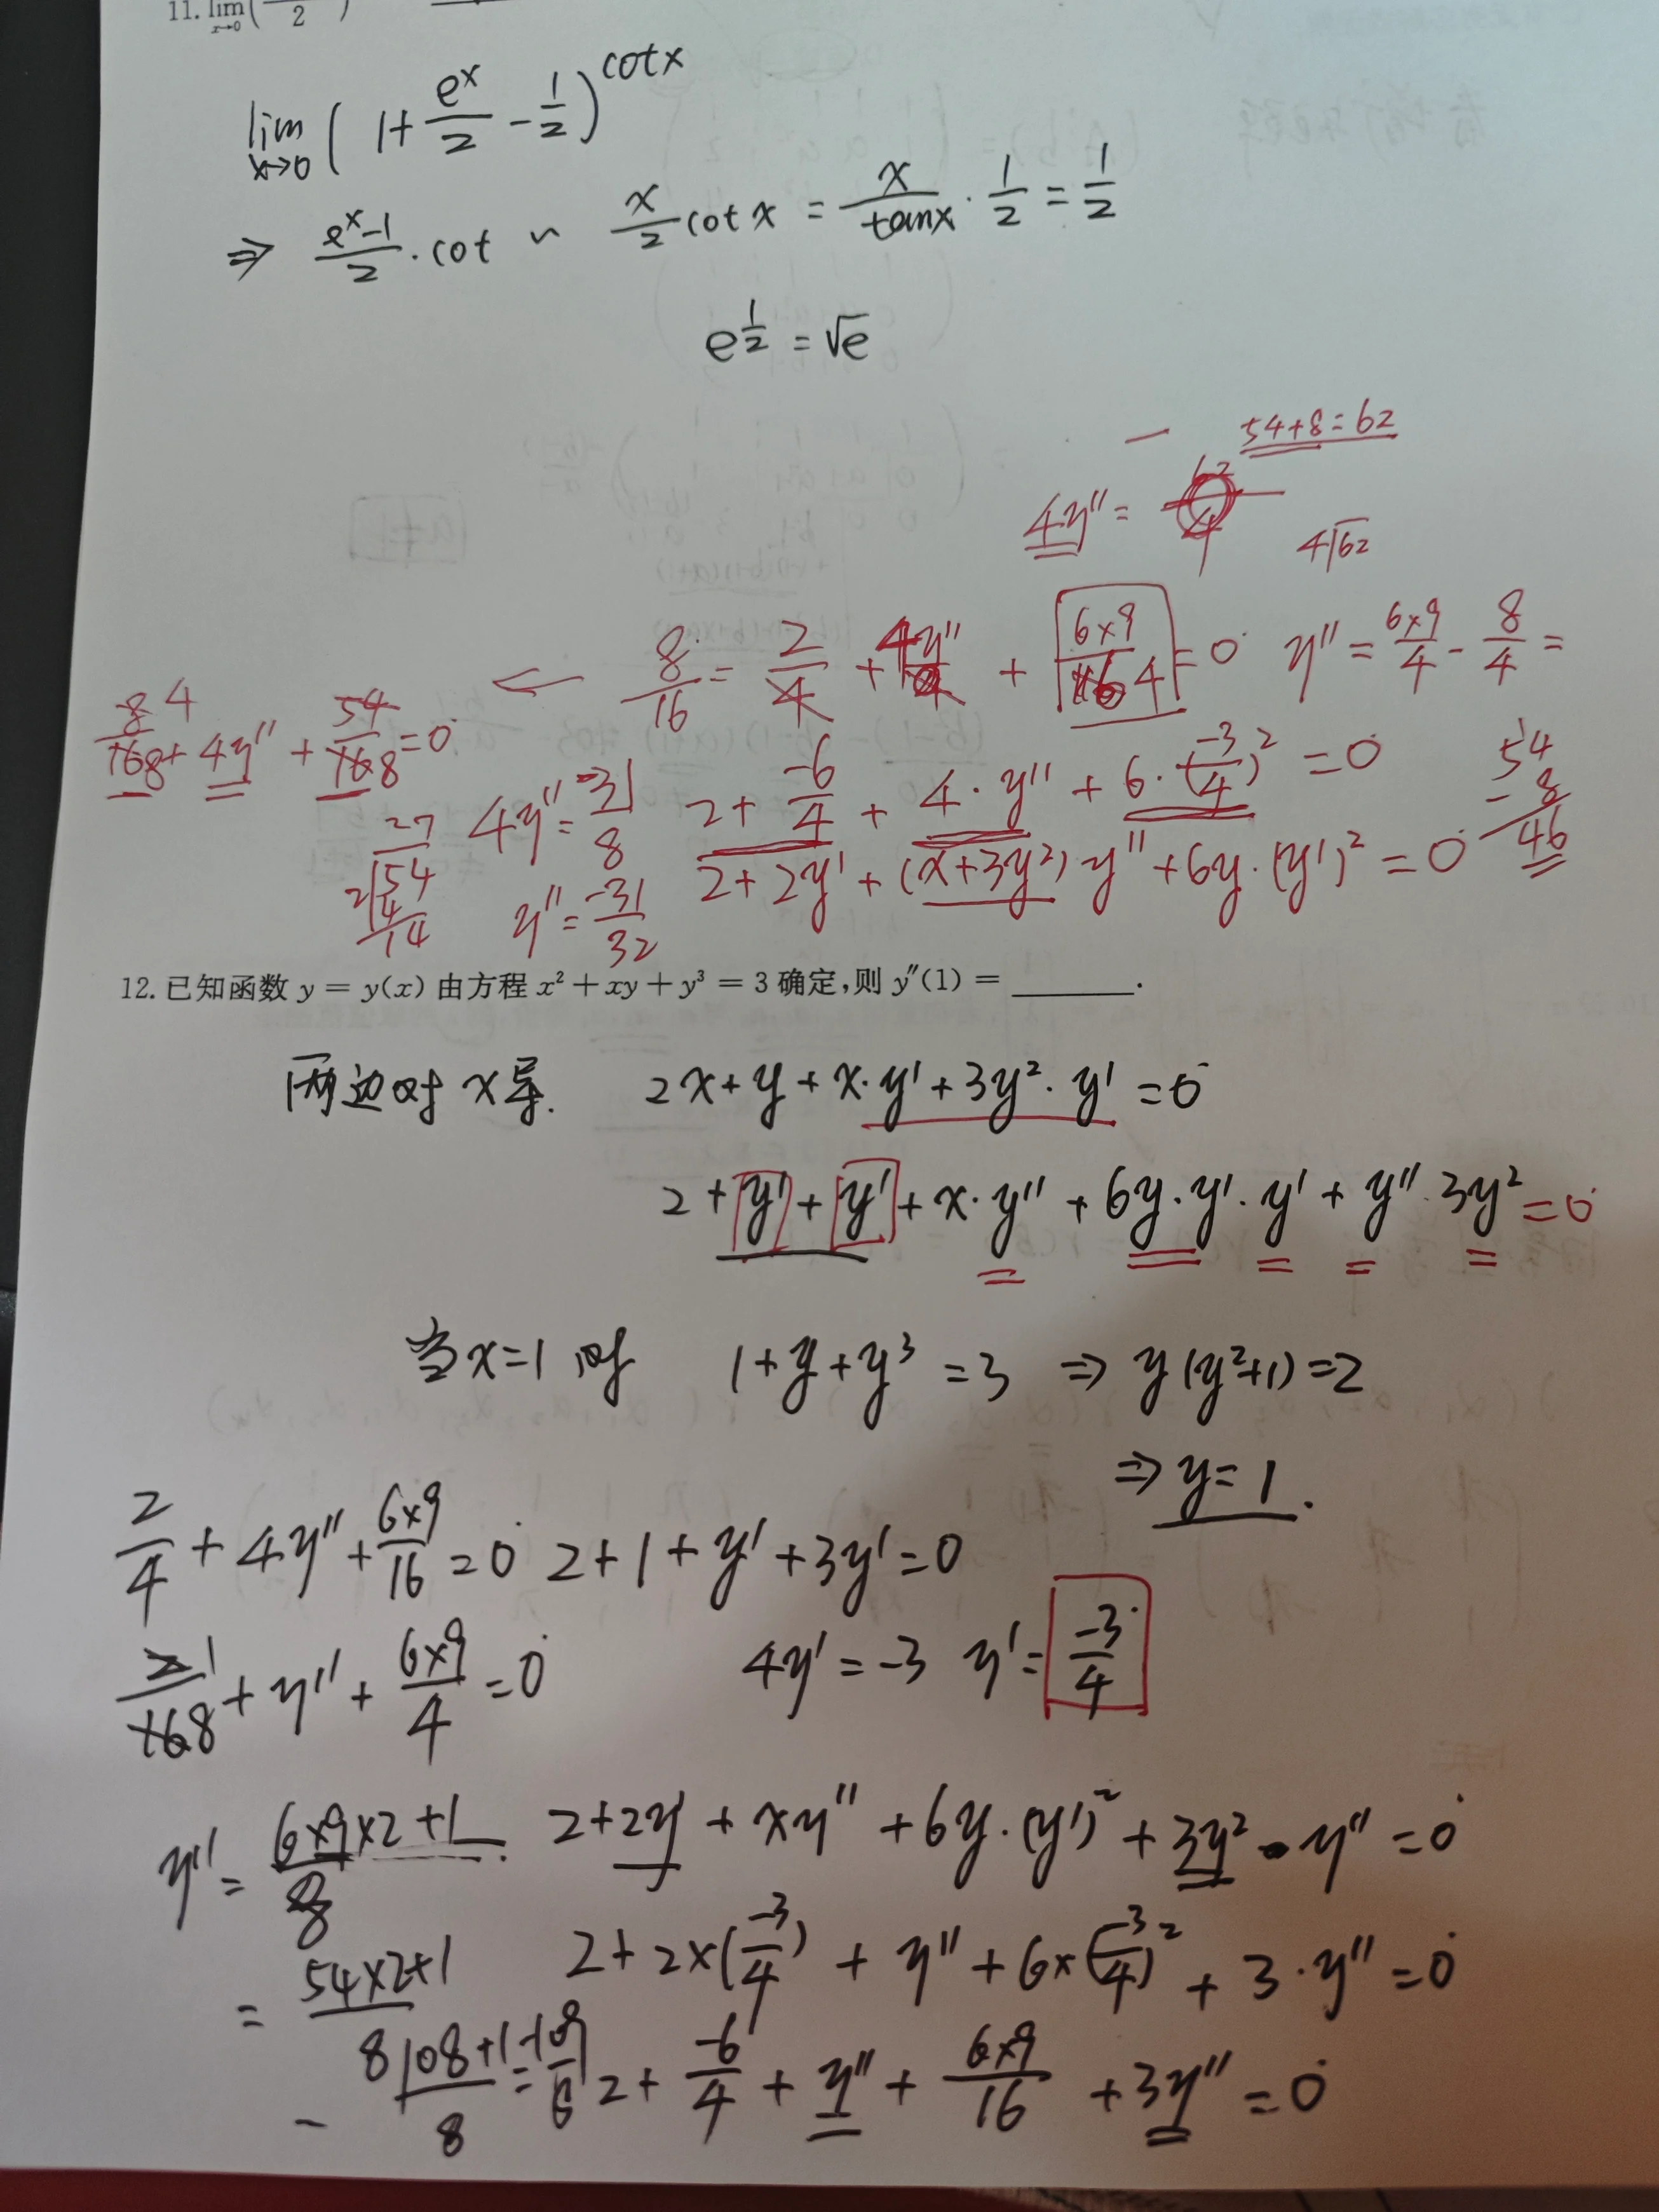 11. lim x→0 ( 2 )
lim x→0 ( 1 + e^x/2 - 1/2 )^cotx
⇒ (e^x-1)/2 · cot ~ x/2 cotx = x/tanx · 1/2 = 1/2
e^(1/2) = √e
54+8=62
4y'' =
4√62
8/16 = 2/4 + 4y'' + 6×9/4 = 0 y'' = 6×9/4 - 8/4 =
4/8 + 4y'' + 54/168 = 0
2 + -6/4 + 4·y'' + 6·(-3/4)² = 0
54
- 8
46
4y'' = -31/8
27
2√54
4
14
y'' = -31/32
2+2y'+(x+3y²)·y''+6y·(y')² = 0
12. 已知函数 y = y(x) 由方程 x² + xy + y³ = 3 确定,则 y″(1) = ________.
两边对x导. 2x+y+x·y'+3y²·y' = 0
2+y'+y'+x·y''+6y·y'·y'+y''·3y² = 0
当x=1时 1+y+y³ = 3 ⇒ y(y²+1)=2
⇒ y=1.
2/4 + 4y'' + 6×9/16 = 0 2+1+y'+3y'=0
1/8 + y'' + 6×9/4 = 0 4y' = -3 y' = -3/4
y'' = 6×9×2+1/8 2+2y'+xy''+6y·(y')²+3y²·y''=0
= 54×2+1/8 2+2×(-3/4)+y''+6×(-3/4)²+3·y''=0
- 108+1/8 = 2+ -6/4 + y'' + 6×9/16 + 3y'' = 0